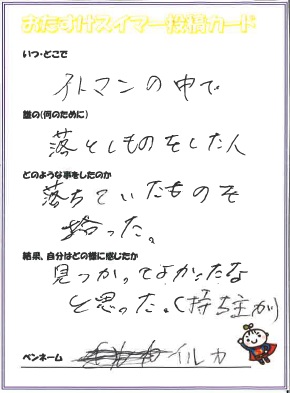 おたすけスイマー投稿カード
いつ・どこで
イトマンの中で
誰の(何のために)
落としものをした人
どのような事をしたのか
落ちていたものを
拾った。
結果、自分はどの様に感じたか
見つかってよかったな
と思った。(持ち主が)
ペンネーム
イルカ